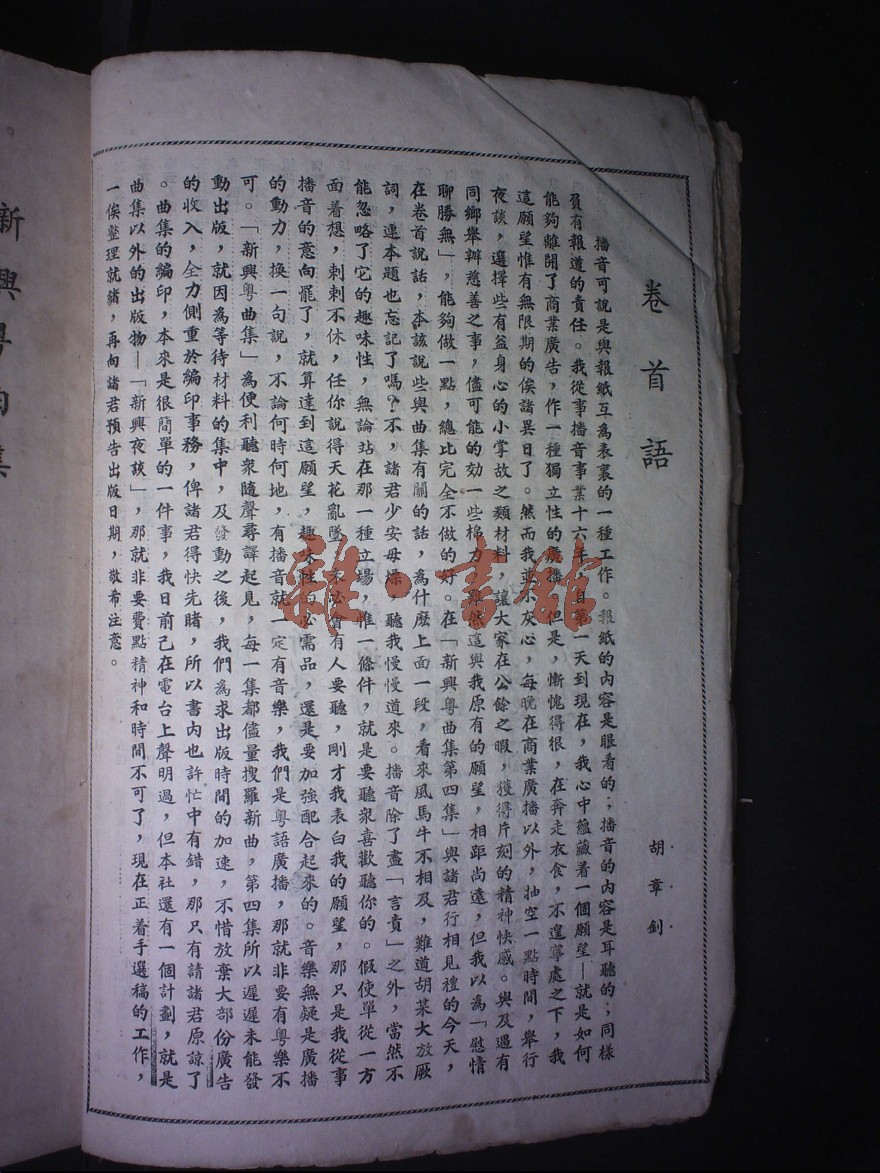 卷首語
胡章釗
播音可說是與報紙互為表裏的一種工作。報紙的內容是眼看的；播音的內容是耳聽的；同樣
負有報道的責任。我從事播音事業十六年，自第一天到現在，我心中蘊藏着一個願望—就是如何
能夠離開了商業廣告，作一種獨立性的廣播，但是，慚愧得很，在奔走衣食，不遑寧處之下，我
這願望惟有無限期的俟諸異日了。然而我並不灰心，每晚在商業廣播以外，抽空一點時間，舉行
夜談，選擇些有益身心的小掌故之類材料，讓大家在公餘之暇，獲得片刻的精神快感。與及遇有
同鄉舉辦慈善之事，儘可能的効一些棉力，雖然這與我原有的願望，相距尚遠，但我以為「慰情
聊勝無」，能夠做一點，總比完全不做的好。在「新興粵曲集第四集」與諸君行相見禮的今天，
在卷首說話，本該說些與曲集有關的話，為什麽上面一段，看來風馬牛不相及，難道胡某大放厥
詞，連本題也忘記了嗎？不，諸君少安毋燥，聽我慢慢道來。播音除了盡「言責」之外，當然不
能忽略了它的趣味性，無論站在那一種立場，惟一條件，就是要聽衆喜歡聽你的。假使單從一方
面着想，剌剌不休，任你說得天花亂墜，不必會有人要聽，剛才我表白我的願望，那只是我從事
播音的意向罷了，就算達到這願望，趣味性的必需品，還是要加強配合起來的。音樂無疑是廣播
的動力，換一句說，不論何時何地，有播音就一定有音樂，我們是粵語廣播，那就非要有粵樂不
可。「新興粵曲集」為便利聽衆隨聲尋譯起見，每一集都儘量搜羅新曲，第四集所以遲遲未能發
動出版，就因為等待材料的集中，及發動之後，我們為求出版時間的加速，不惜放棄大部份廣告
的收入，全力側重於編印事務，俾諸君得快先睹，所以書內也許忙中有錯，那只有請諸君原諒了
。曲集的編印，本來是很簡單的一件事，我日前己在電台上聲明過，但本社還有一個計劃，就是
曲集以外的出版物—「新興夜談」，那就非要費點精神和時間不可了，現在正着手選稿的工作，
一俟整理就緒，再向諸君預告出版日期，敬希注意。
新興粵曲集
雜·書館